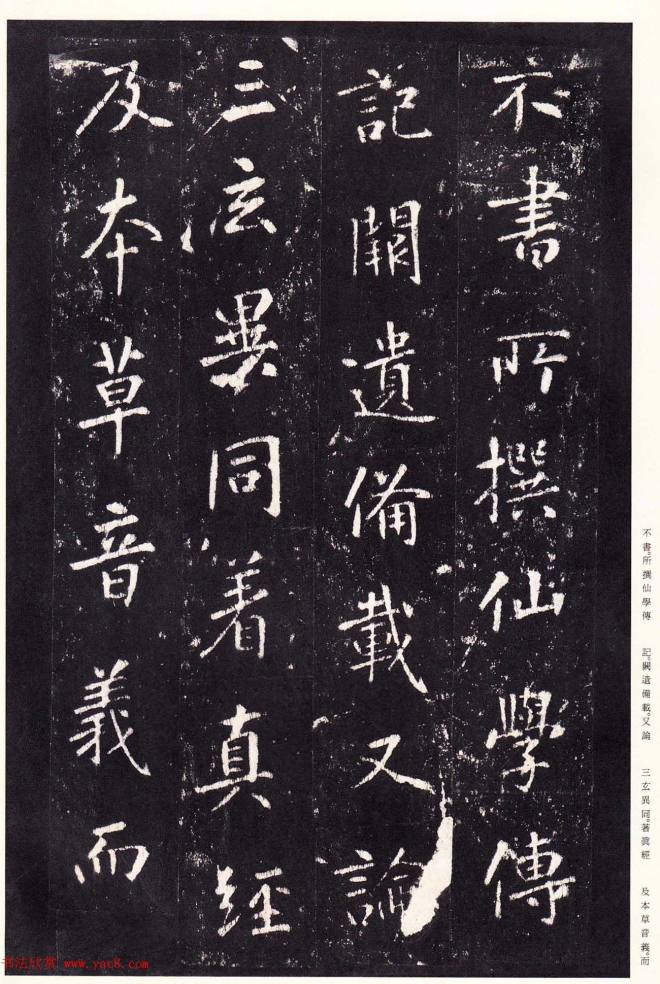 不書所撰仙學傳
記闕遺備載又論
三玄異同著真經
及本草音義而
不書。所撰仙學傳　記。闕遺備載。又論　三玄異同。著眞經　及本草音義。而
书法欣赏 www.yac8.com